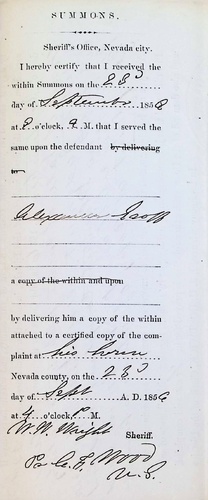 SUMMONS.
Sheriff's Office, Nevada city.
I hereby certify that I received the
within Summons on the 23d
day of September 1856
at 9 o'clock, A.M. that I served the
same upon the defendant by delivering
to
Alexander
a copy of the within and upon
by delivering him a copy of the within
attached to a certified copy of the com-
plaint at his house
Nevada county, on the 23d
day of Sept A. D. 1856
at 4 o'clock, P.M.
W. W. Wright Sheriff.
Pr C. F. Wood
U. S.